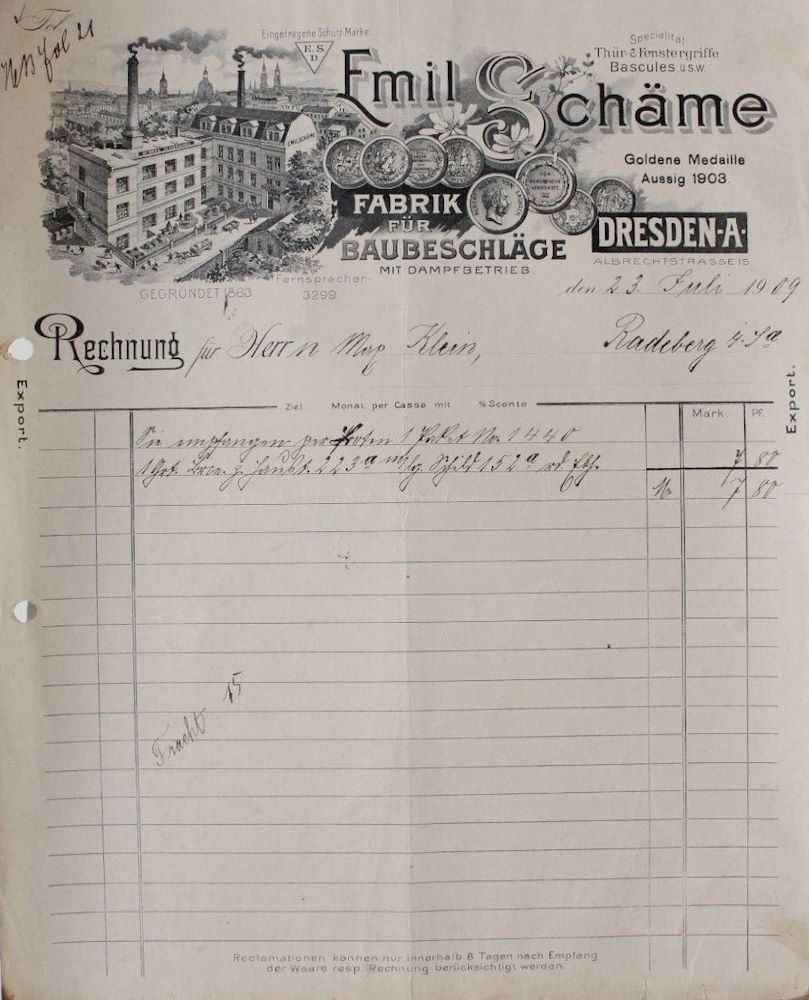 NB fol 21
Eingetragene Schutz-Marke.
E.S.
D.
Emil Schäme
Specialität:
Thür- & Fenstergriffe
Bascules u.s.w.
Goldene Medaille
Aussig 1903.
FABRIK
FÜR
BAUBESCHLÄGE
MIT DAMPFBETRIEB.
DRESDEN-A.
ALBRECHTSTRASSE 15.
GEGRÜNDET 1863.
Fernsprecher
3299.
den 23. Juli 1909
Rechnung für Herrn Max Klein, Radeberg i. Sa
Export.
Export.
Ziel Monat per Cassa mit % Sconto
Mark. Pf.
Sie empfangen per Boten 1 Paket No. 1440
1 223a Schild 152a 7 80
M. 7 80
Fracht 15
Reclamationen können nur innerhalb 8 Tagen nach Empfang
der Waare resp. Rechnung berücksichtigt werden.